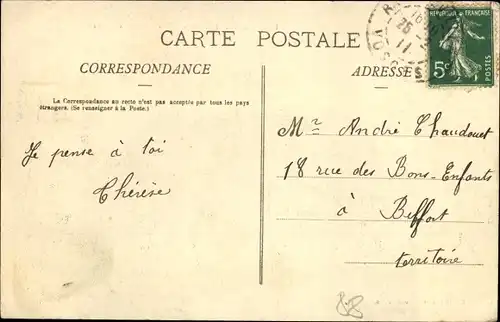 CARTE POSTALE
CORRESPONDANCE
La Correspondance au recto n'est pas acceptée par tous les pays
étrangers. (Se renseigner à la Poste.)
Je pense à toi
Thérèse
ADRESSE
RÉPUBLIQUE FRANÇAISE
5c
POSTES
Mr André Chaudouet
18 rue des Bons-Enfants
à Belfort
territoire